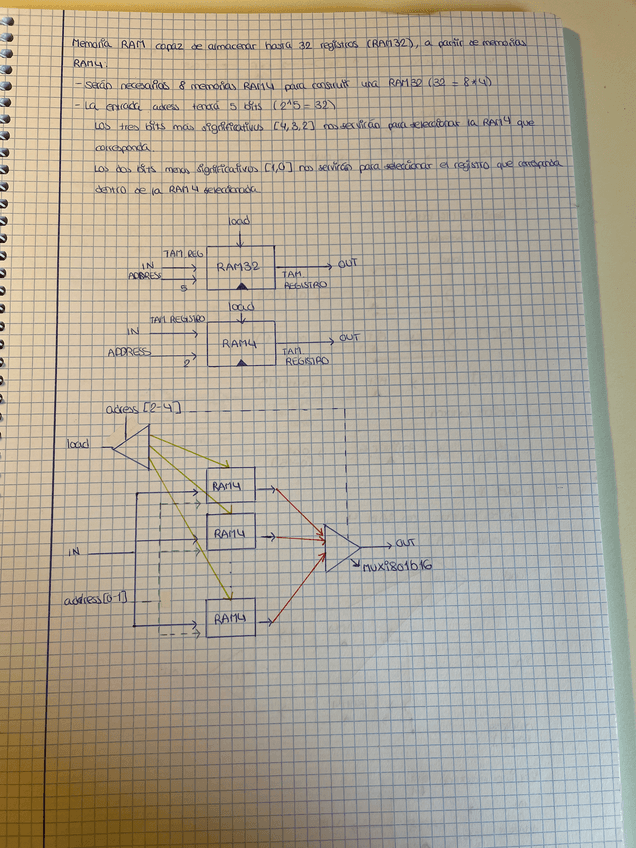 Memoria RAM capaz de almacenar hasta 32 registros (RAM32), a partir de memorias
RAM4.
- Serán necesarias 8 memorias RAM4 para construir una RAM32 (32 = 8*4)
- La entrada adress tendrá 5 bits (2^5 = 32)
Los tres bits más significativos [4,3,2] nos servirán para seleccionar la RAM4 que
corresponda.
Los dos bits menos significativos [1,0] nos servirán para seleccionar el registro que corresponda
dentro de la RAM4 seleccionada
load
TAM. REG
IN
ADDRESS
5
RAM32
OUT
TAM.
REGISTRO
load
TAM. REGISTRO
IN
ADDRESS
2
RAM4
OUT
TAM.
REGISTRO
adress [2-4]
load
RAM4
RAM4
IN
OUT
MUX8to1b16
address[0-1]
RAM4